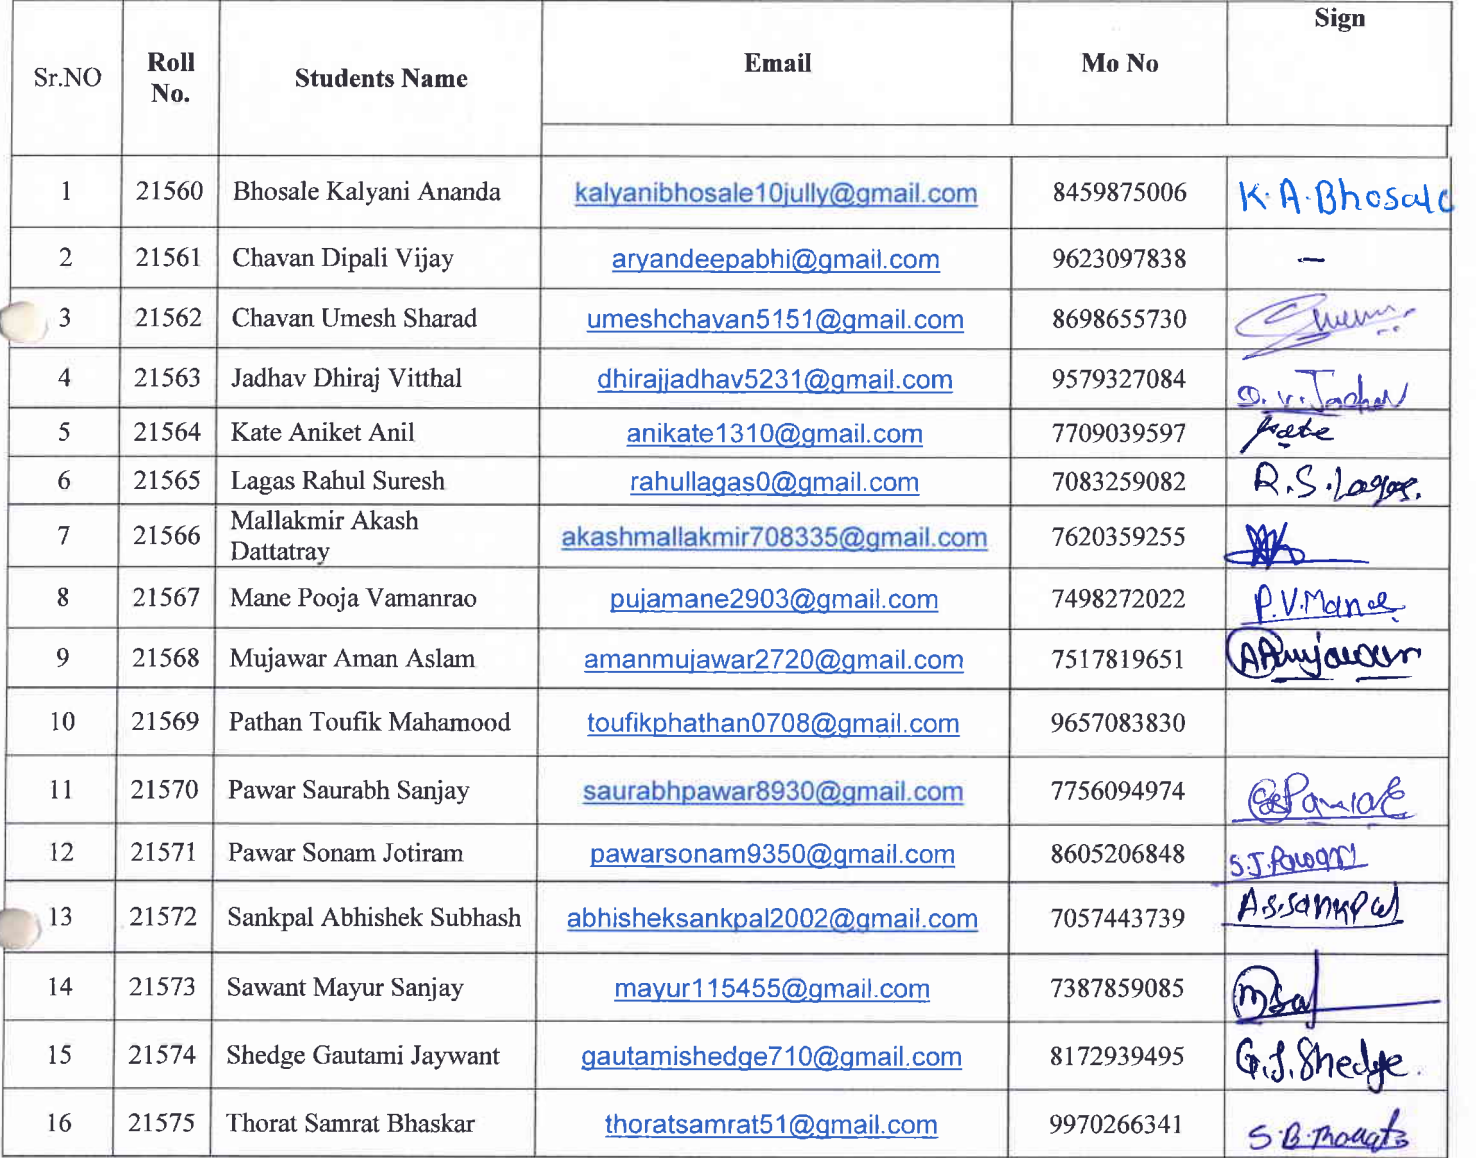 Sr.NO Roll No. Students Name Email Mo No Sign
1 21560 Bhosale Kalyani Ananda kalyanibhosale10jully@gmail.com 8459875006 K.A.Bhosale
2 21561 Chavan Dipali Vijay aryandeepabhi@gmail.com 9623097838 –
3 21562 Chavan Umesh Sharad umeshchavan5151@gmail.com 8698655730
4 21563 Jadhav Dhiraj Vitthal dhirajjadhav5231@gmail.com 9579327084 D.V.Jadhav
5 21564 Kate Aniket Anil anikate1310@gmail.com 7709039597 Kate
6 21565 Lagas Rahul Suresh rahullagas0@gmail.com 7083259082 R.S.Lagas.
7 21566 Mallakmir Akash Dattatray akashmallakmir708335@gmail.com 7620359255
8 21567 Mane Pooja Vamanrao pujamane2903@gmail.com 7498272022 P.V.Mane
9 21568 Mujawar Aman Aslam amanmujawar2720@gmail.com 7517819651 AAmujawar
10 21569 Pathan Toufik Mahamood toufikphathan0708@gmail.com 9657083830
11 21570 Pawar Saurabh Sanjay saurabhpawar8930@gmail.com 7756094974
12 21571 Pawar Sonam Jotiram pawarsonam9350@gmail.com 8605206848 S.J.Pawar
13 21572 Sankpal Abhishek Subhash abhisheksankpal2002@gmail.com 7057443739 A.S.Sankpal
14 21573 Sawant Mayur Sanjay mayur115455@gmail.com 7387859085
15 21574 Shedge Gautami Jaywant gautamishedge710@gmail.com 8172939495 G.J.Shedge.
16 21575 Thorat Samrat Bhaskar thoratsamrat51@gmail.com 9970266341 S.B.Thorat